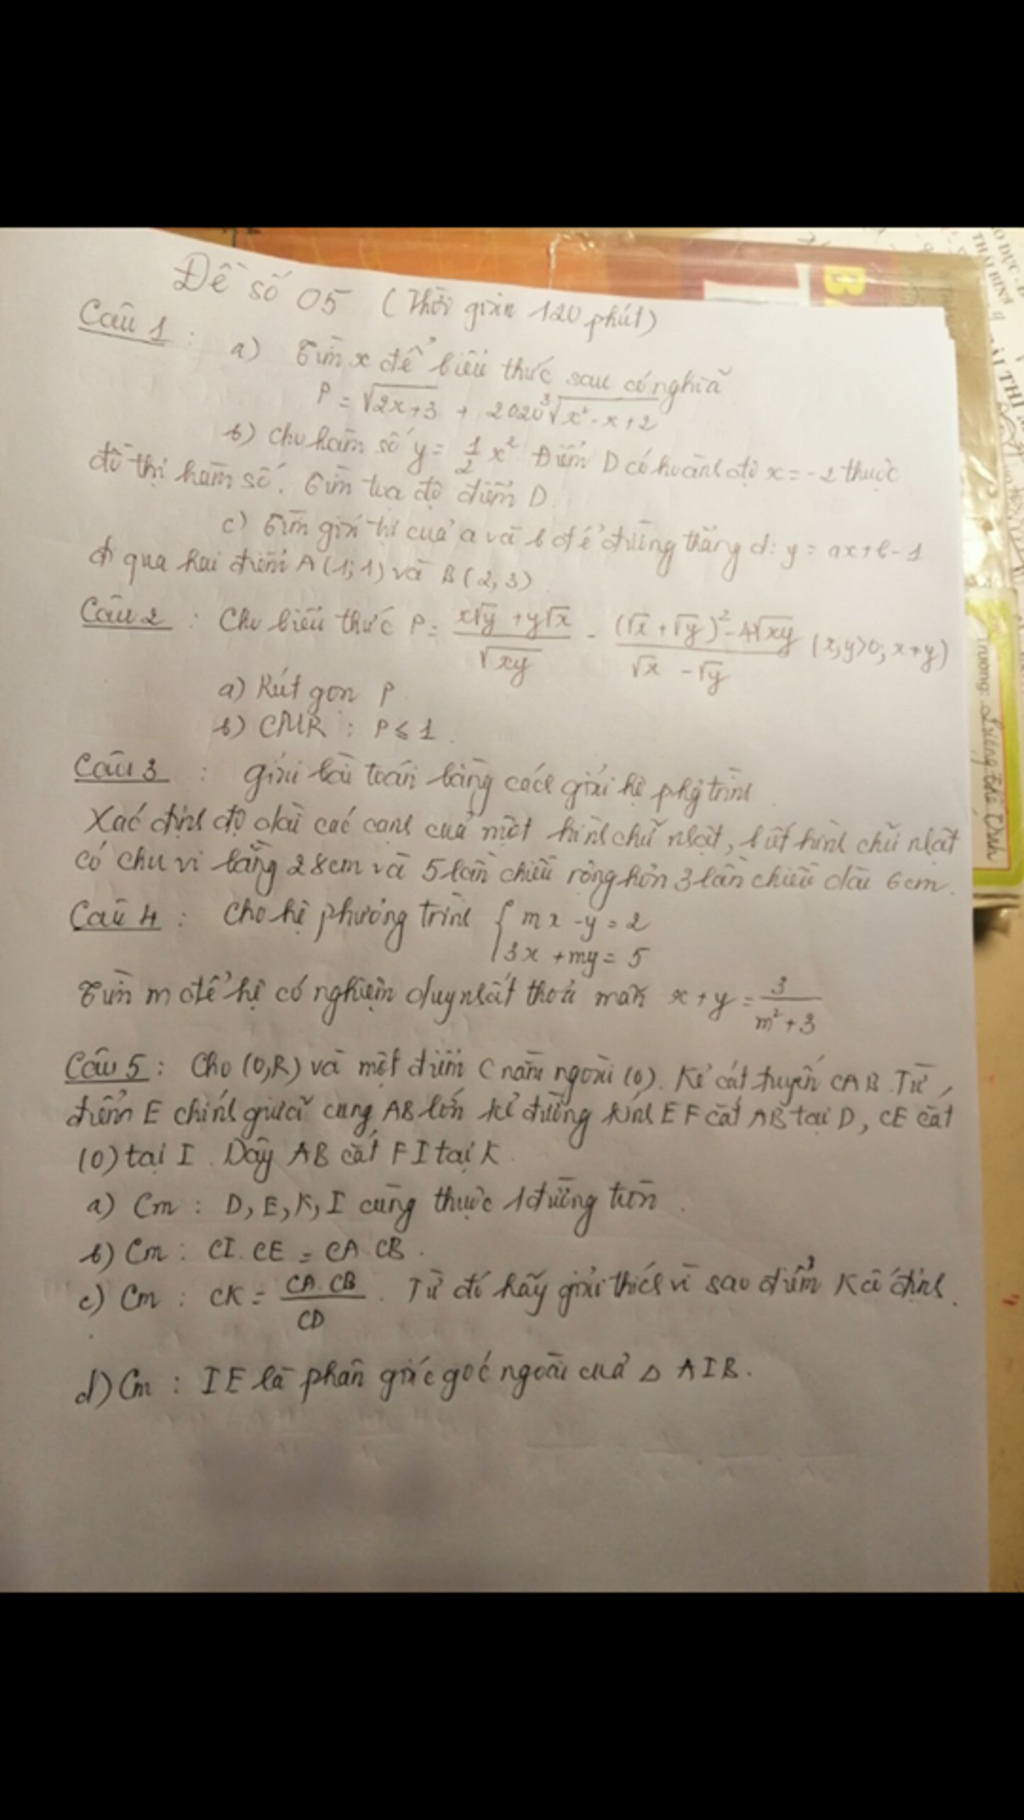 Đề số 05 (Thời gian 120 phút)
Câu 1 : a) Tìm x để biểu thức sau có nghĩa
P = √(2x+3) + 2020 ³√(x² - x + 2)
b) Cho hàm số y = 1/2 x² Điểm D có hoành độ x = -2 thuộc
đồ thị hàm số. Tìm tọa độ điểm D
c) Tìm giá trị của a và b để đường thẳng d: y = ax + b - 1
đi qua hai điểm A (1;1) và B (2,3)
Câu 2 : Cho biểu thức P = (x√y + y√x)/√xy - ((√x + √y)² - 4√xy)/(√x - √y) (x;y>0; x≠y)
a) Rút gọn P
b) CMR : P ≤ 1.
Câu 3 : giải bài toán bằng cách giải hệ phg trình
Xác định độ dài các cạnh của một hình chữ nhật, biết hình chữ nhật
có chu vi bằng 28cm và 5 lần chiều rộng hơn 3 lần chiều dài 6cm.
Câu 4 : Cho hệ phương trình { mx - y = 2
3x + my = 5
Tìm m để hệ có nghiệm duy nhất thoả mãn x + y = 3/(m² + 3)
Câu 5 : Cho (O,R) và một điểm C nằm ngoài (O). Kẻ cát tuyến CAB. Từ
điểm E chính giữa cung AB lớn kẻ đường kính EF cắt AB tại D, CE cắt
(O) tại I. Dây AB cắt FI tại K
a) Cm : D, E, K, I cùng thuộc 1 đường tròn.
b) Cm : CI. CE = CA. CB.
c) Cm : CK = CA. CB/CD. Từ đó hãy giải thích vì sao điểm K cố định.
d) Cm : IE là phân giác góc ngoài của △ AIB.
Trường: Lương Thế Vinh